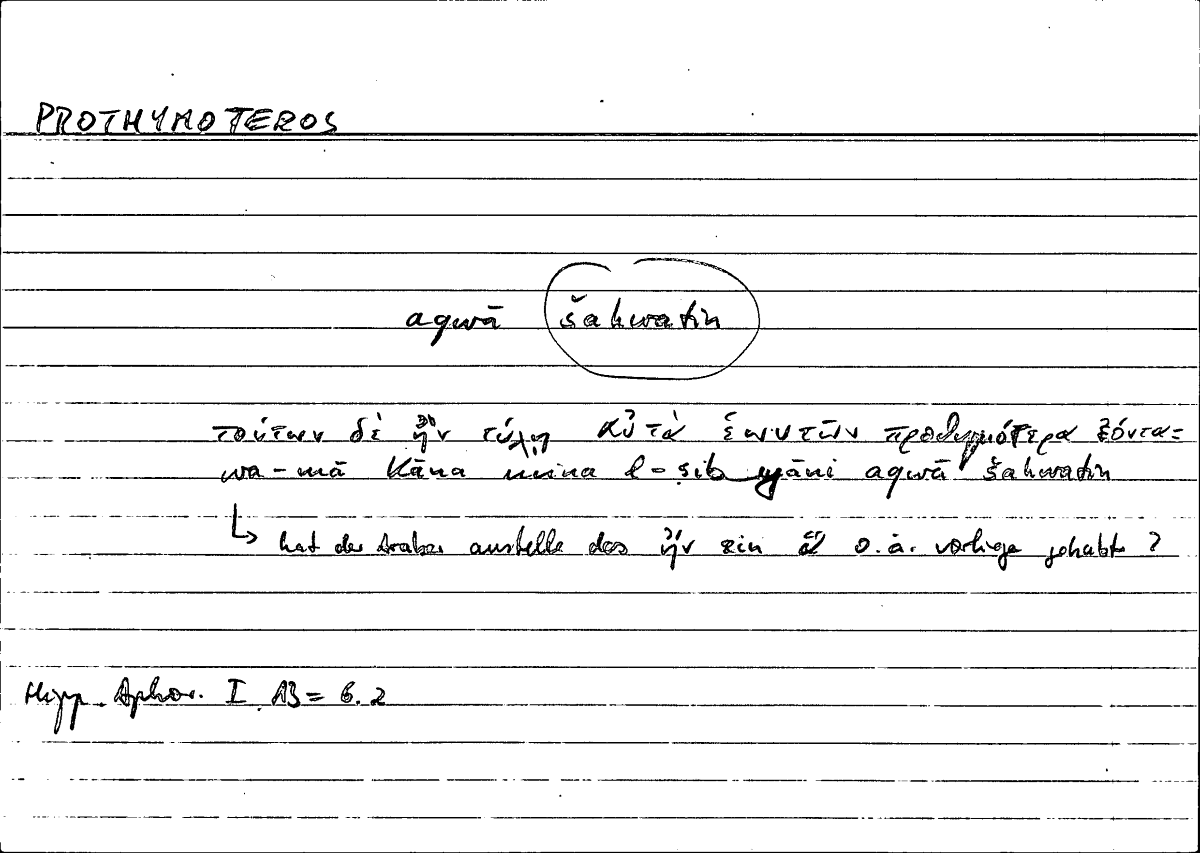 PROTHYMOTEROS
aqwā šahwatin
τούτων δὲ ἢν τύχῃ αὐτὰ ἑωυτῶν προθυμότερα ἐόντα =
wa-mā kāna mina l-ṣibyāni aqwā šahwatin
↳ hat der Araber anstelle des ἢν ein εἰ o.ä. vorliege gehabt ?
Hipp. Aphor. I, 13 = 6.2